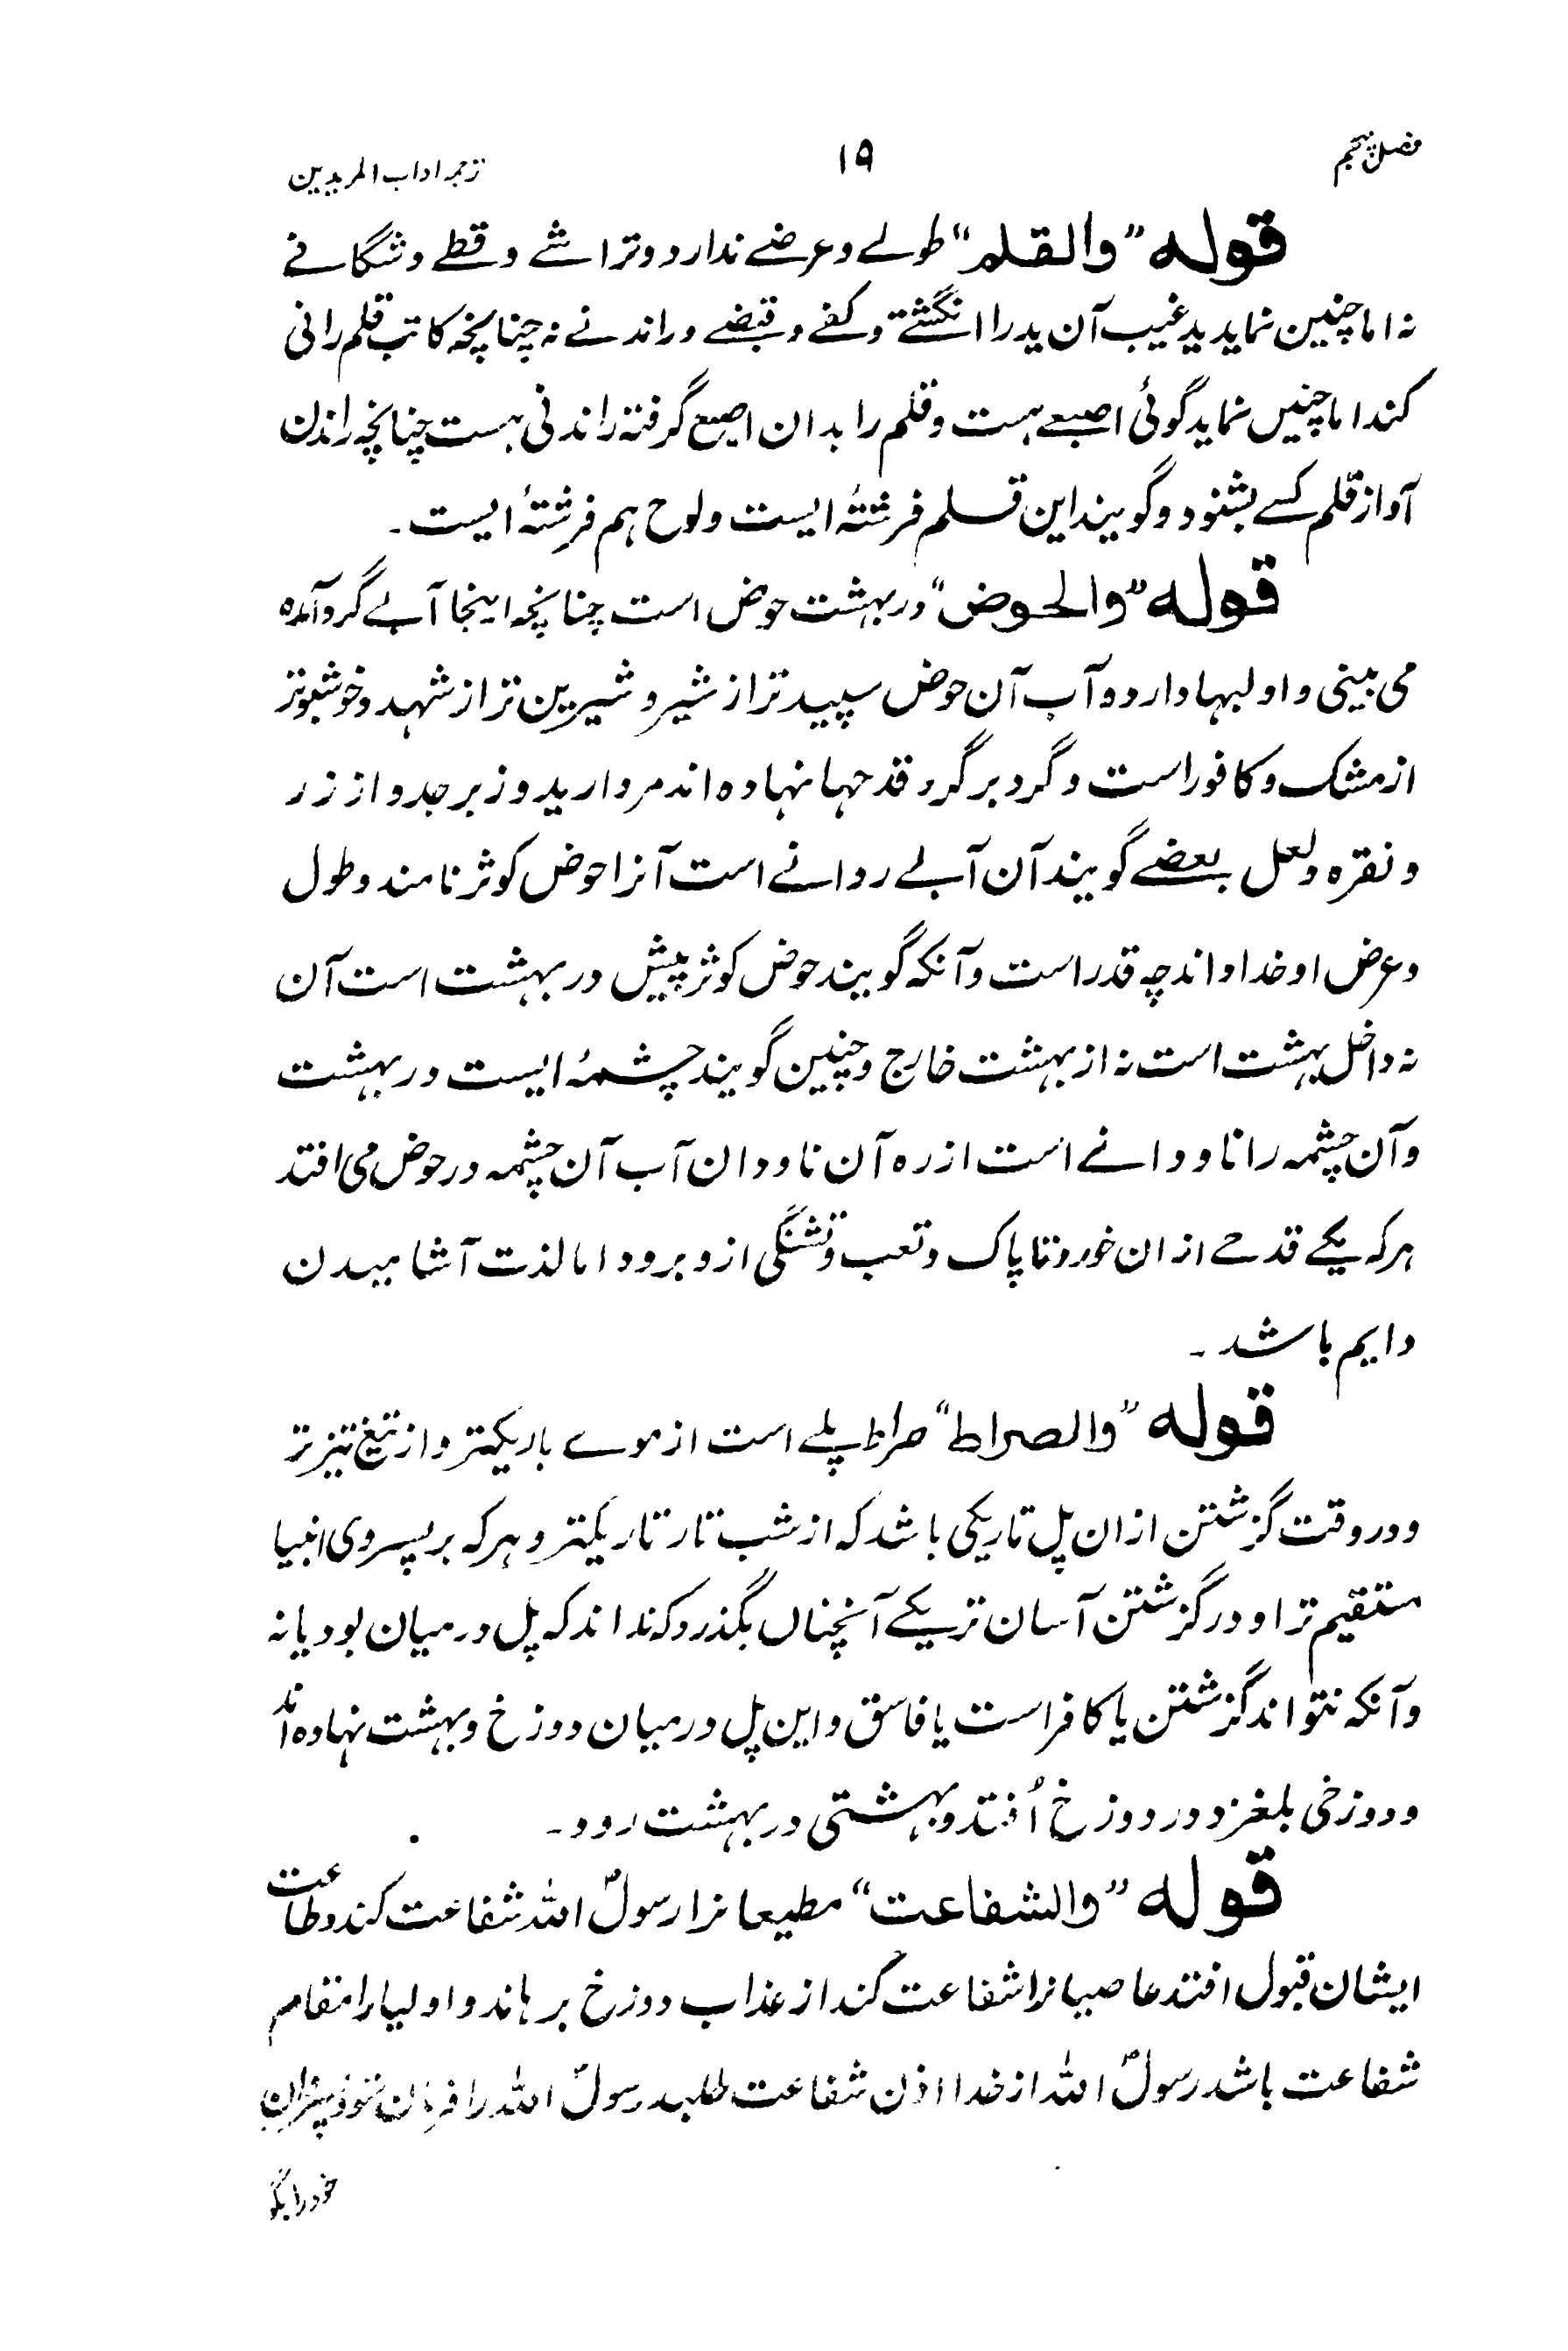 فصل پنجم ۱۹ ترجمہ اداب المریدین
قوله ”والقلم“ طولے وعرضے ندارد وتراشے وقطے وشگافے
نہ اما چنین نماید ید غیب آن ید را انگشتے وکفے وقبضے وراندنے نہ چنانچہ کاتب قلم رانی
کند اما چنیں نماید گوئی اصبعے ہست وقلم را بدان اصبع گرفتہ راندنی ہست چنانچہ راندن
آواز قلم کسے بشنود وگویند این قلم فرشتۂ ایست ولوح ہم فرشتۂ ایست۔
قوله ”والحوض“ در بہشت حوض است چنانچہ اینجا آبے گرد آمدہ
می بینی واو لبہا دارد وآب آن حوض سپید تر از شیر و شیرین تر از شہد وخوشبوتر
از مشک وکافور است وگرد برگرد قدحہا نہادہ اند مروارید وزبرجد واز زر
ونقرہ ولعل بعضے گویند آن آبے روانے است آنرا حوض کوثر نامند وطول
وعرض او خدا داند چہ قدر است وآنکہ گویند حوض کوثر پیش در بہشت است آن
نہ داخل بہشت است نہ از بہشت خارج وچنین گویند چشمۂ ایست در بہشت
وآن چشمہ را ناودانے است از رہ آن ناودان آب آن چشمہ در حوض می افتد
ہرکہ یکے قدحے ازان خورد تا پاک وتعب وتشنگی ازو برود اما لذت آشامیدن
دایم باشد۔
قوله ”والصراط“ صراط پلے است از موے باریکتر و از تیغ تیز تر
ودر وقت گزشتن ازان پل تاریکی باشد کہ از شب تار تاریکتر وہرکہ بر پسروی انبیا
مستقیم تر او در گزشتن آسان تر یکے آنچناں بگذرد کہ نداند کہ پل درمیان بود یا نہ
وآنکہ نتواند گزشتن یا کافر است یا فاسق و این پل درمیان دوزخ وبہشت نہادہ اند
ودوزخی بلغزد در دوزخ اُفتد وبہشتی در بہشت رود۔
قوله ”والشفاعت“ مطیعانرا رسولؐ اللہ شفاعت کند وطاعت
ایشان قبول افتد عاصیانرا شفاعت کند از عذاب دوزخ برہاند واولیا را مقام
شفاعت باشد رسولؐ اللہ از خدا اذن شفاعت طلبد رسولؐ اللہ را فرمان شود
خود را بگو